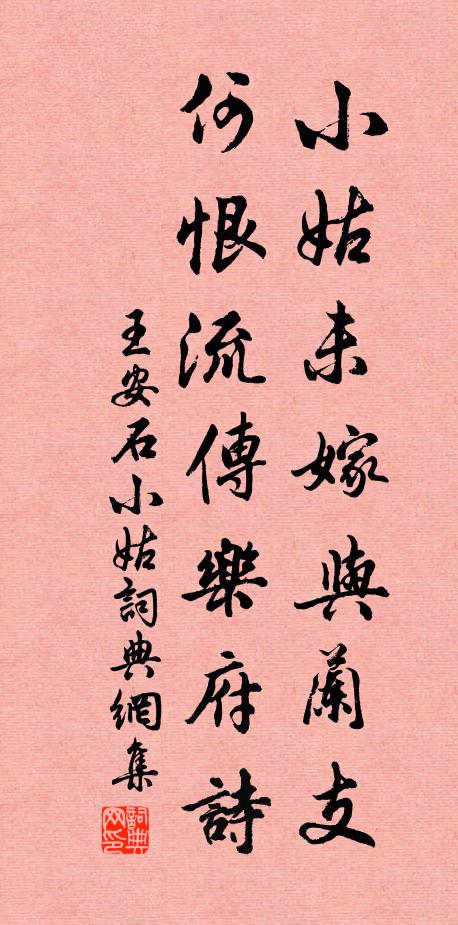 小姑未嫁與蘭支
何恨流傳樂府詩
王安石小姑詞典網集
詞典网印